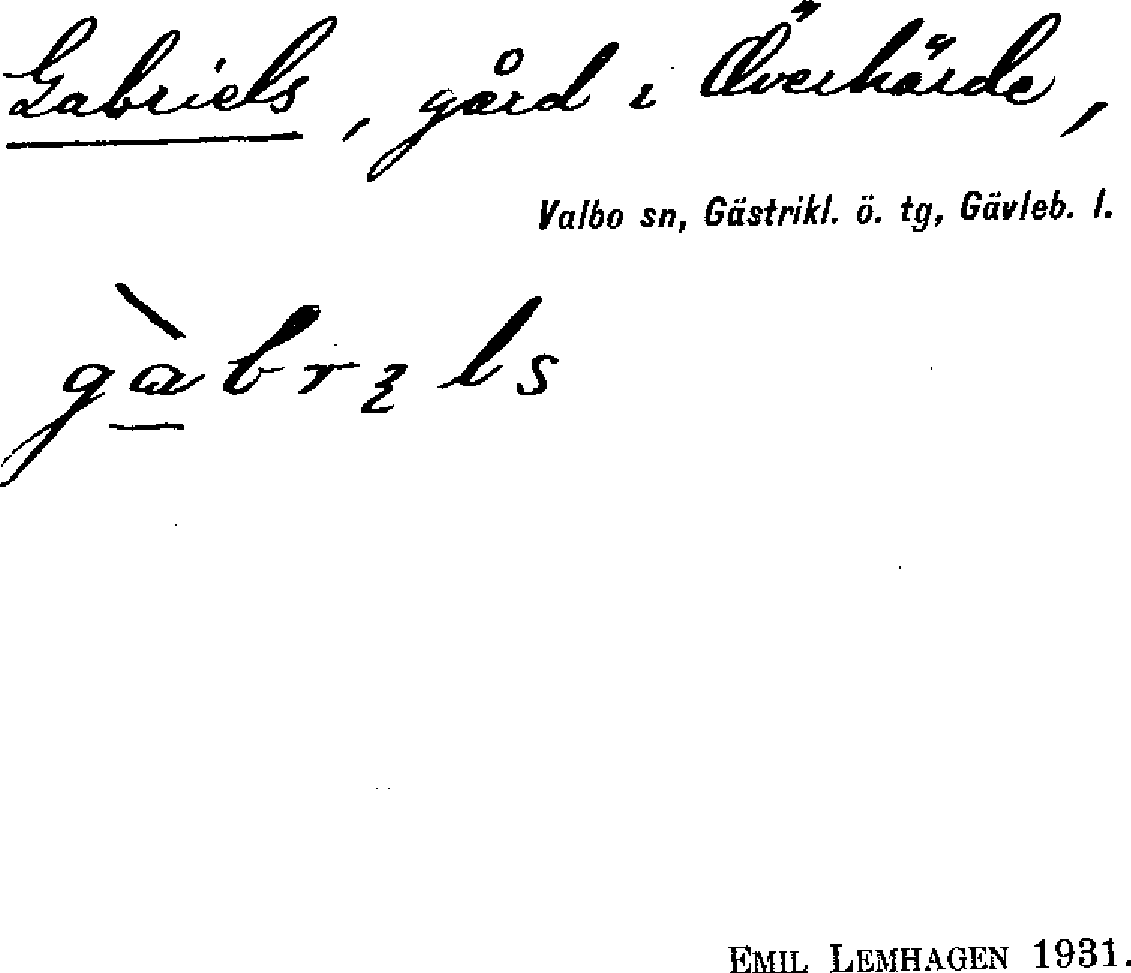 Gabriels, gård i Överhärde,
Valbo sn, Gästrikl. ö. tg, Gävleb. l.
EMIL LEMHAGEN 1931.